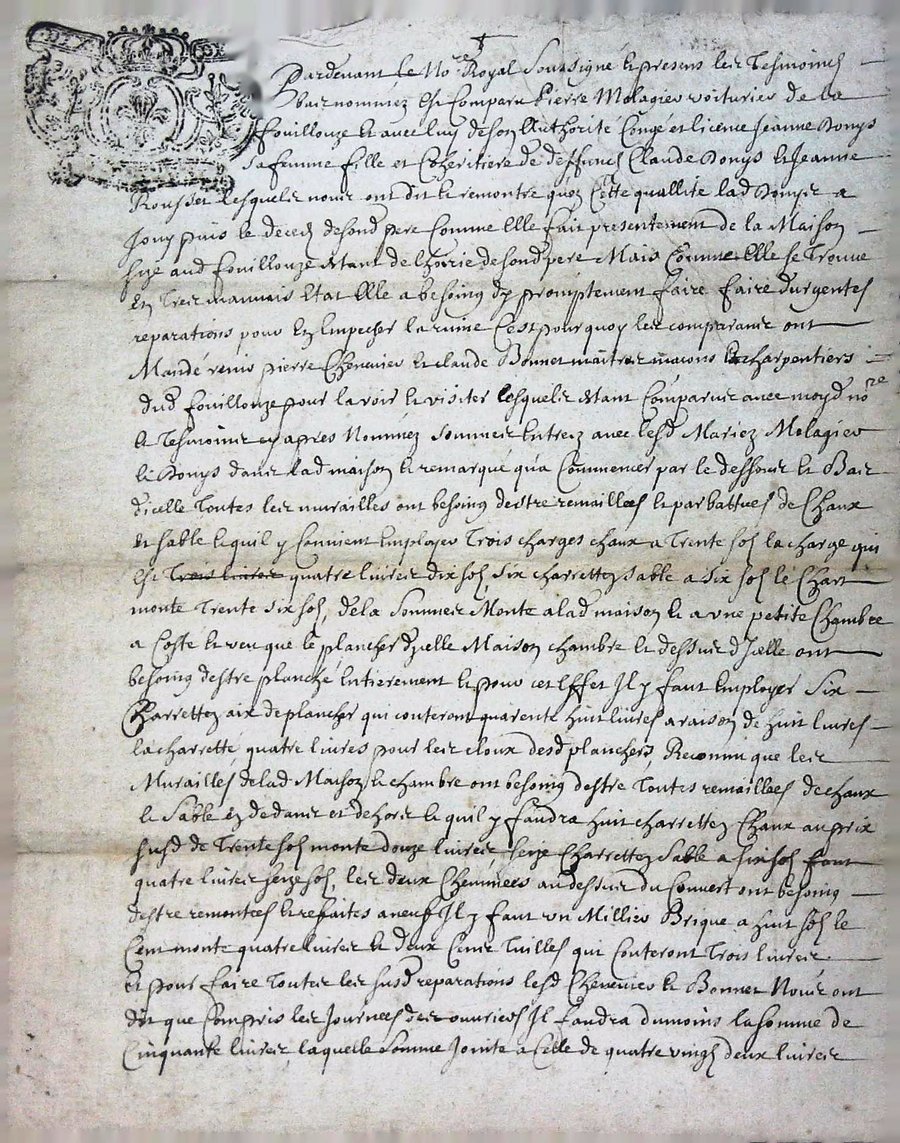 Pardevant le No.re Royal Soubsigné et presens les Tesmoins
bas nommez est Comparu Pierre Molagier voiturier de la
fouillouze et avec luy de son Authorité Congé et licence Jeanne Bonys
sa femme fille et Coheritiere de deffunct Claude Bonys et Jeanne
Rousset lesquels nous ont dit et remontre quen Cette quallité lad Bonys a
Jouy puis le deced de sond pere Comme Elle fait presentement de la Maison
size aud fouillouze Estant de lhoirie de sond pere Mais Comme Elle se Trouve
En Tres mauvais Etat Elle a besoing dy promptement faire faire durgentes
reparations pour En Empecher la ruine Cest pourquoy les comparans ont
Mandé venir pierre Chenevier et claude Bonnet maitres maçons et charpentiers
dud fouillouze pour la voir et visiter lesquels Estant Comparus avec moyd no.re
et Tesmoins cy apres Nommez Sommes Entrez avec lesd Mariez Molagier
et Bonys dans lad maison et remarqué qua Commencer par le dessous et Bas
dicelle Toutes les murailles ont besoing destre remaillees et parbattues de Chaux
et sable et quil y Convient Employer Trois charges chaux a Trente sols la charge qui
est Trois livres quatre livres dix sols six charrettes sable a six sols le Char
monte Trente six sols, de la Sommes Monte a lad maison et a une petite Chambre
a Coste et veu que le plancher dycelle Maison chambre et dessus dJcelle ont
besoing destre planché Entierement et pour cet Effet Jl y faut Employer Six
Charrettes aix de plancher qui couteront quarente huit livres a raison de huit livres
la charrette quatre livres pour les cloux desd planchers, Reconnu que les
Murailles de lad Maison et chambre ont besoing destre Toutes remaillees de chaux
et Sable En dedans et dehors et quil y faudra huit charrettes Chaux au prix
susd de Trente sols monte douze livres seize Charrettes Sable a six sols font
quatre livres seize sols, les deux Cheminées au dessus du Couvert ont besoing
destre remontees et refaites a neuf Jl y faut un Millier Brique a huit sols le
Cent monte quatre livres et deux Cens Tuilles qui Couteront Trois livres
Et pour faire Toutes les susd reparations lesd Chenevier et Bonnet Nous ont
dit que Compris les Journees des ouvriers Jl faudra dumoins la somme de
Cinquante livres laquelle Somme Jointe a Celle de quatre vingt deux livres